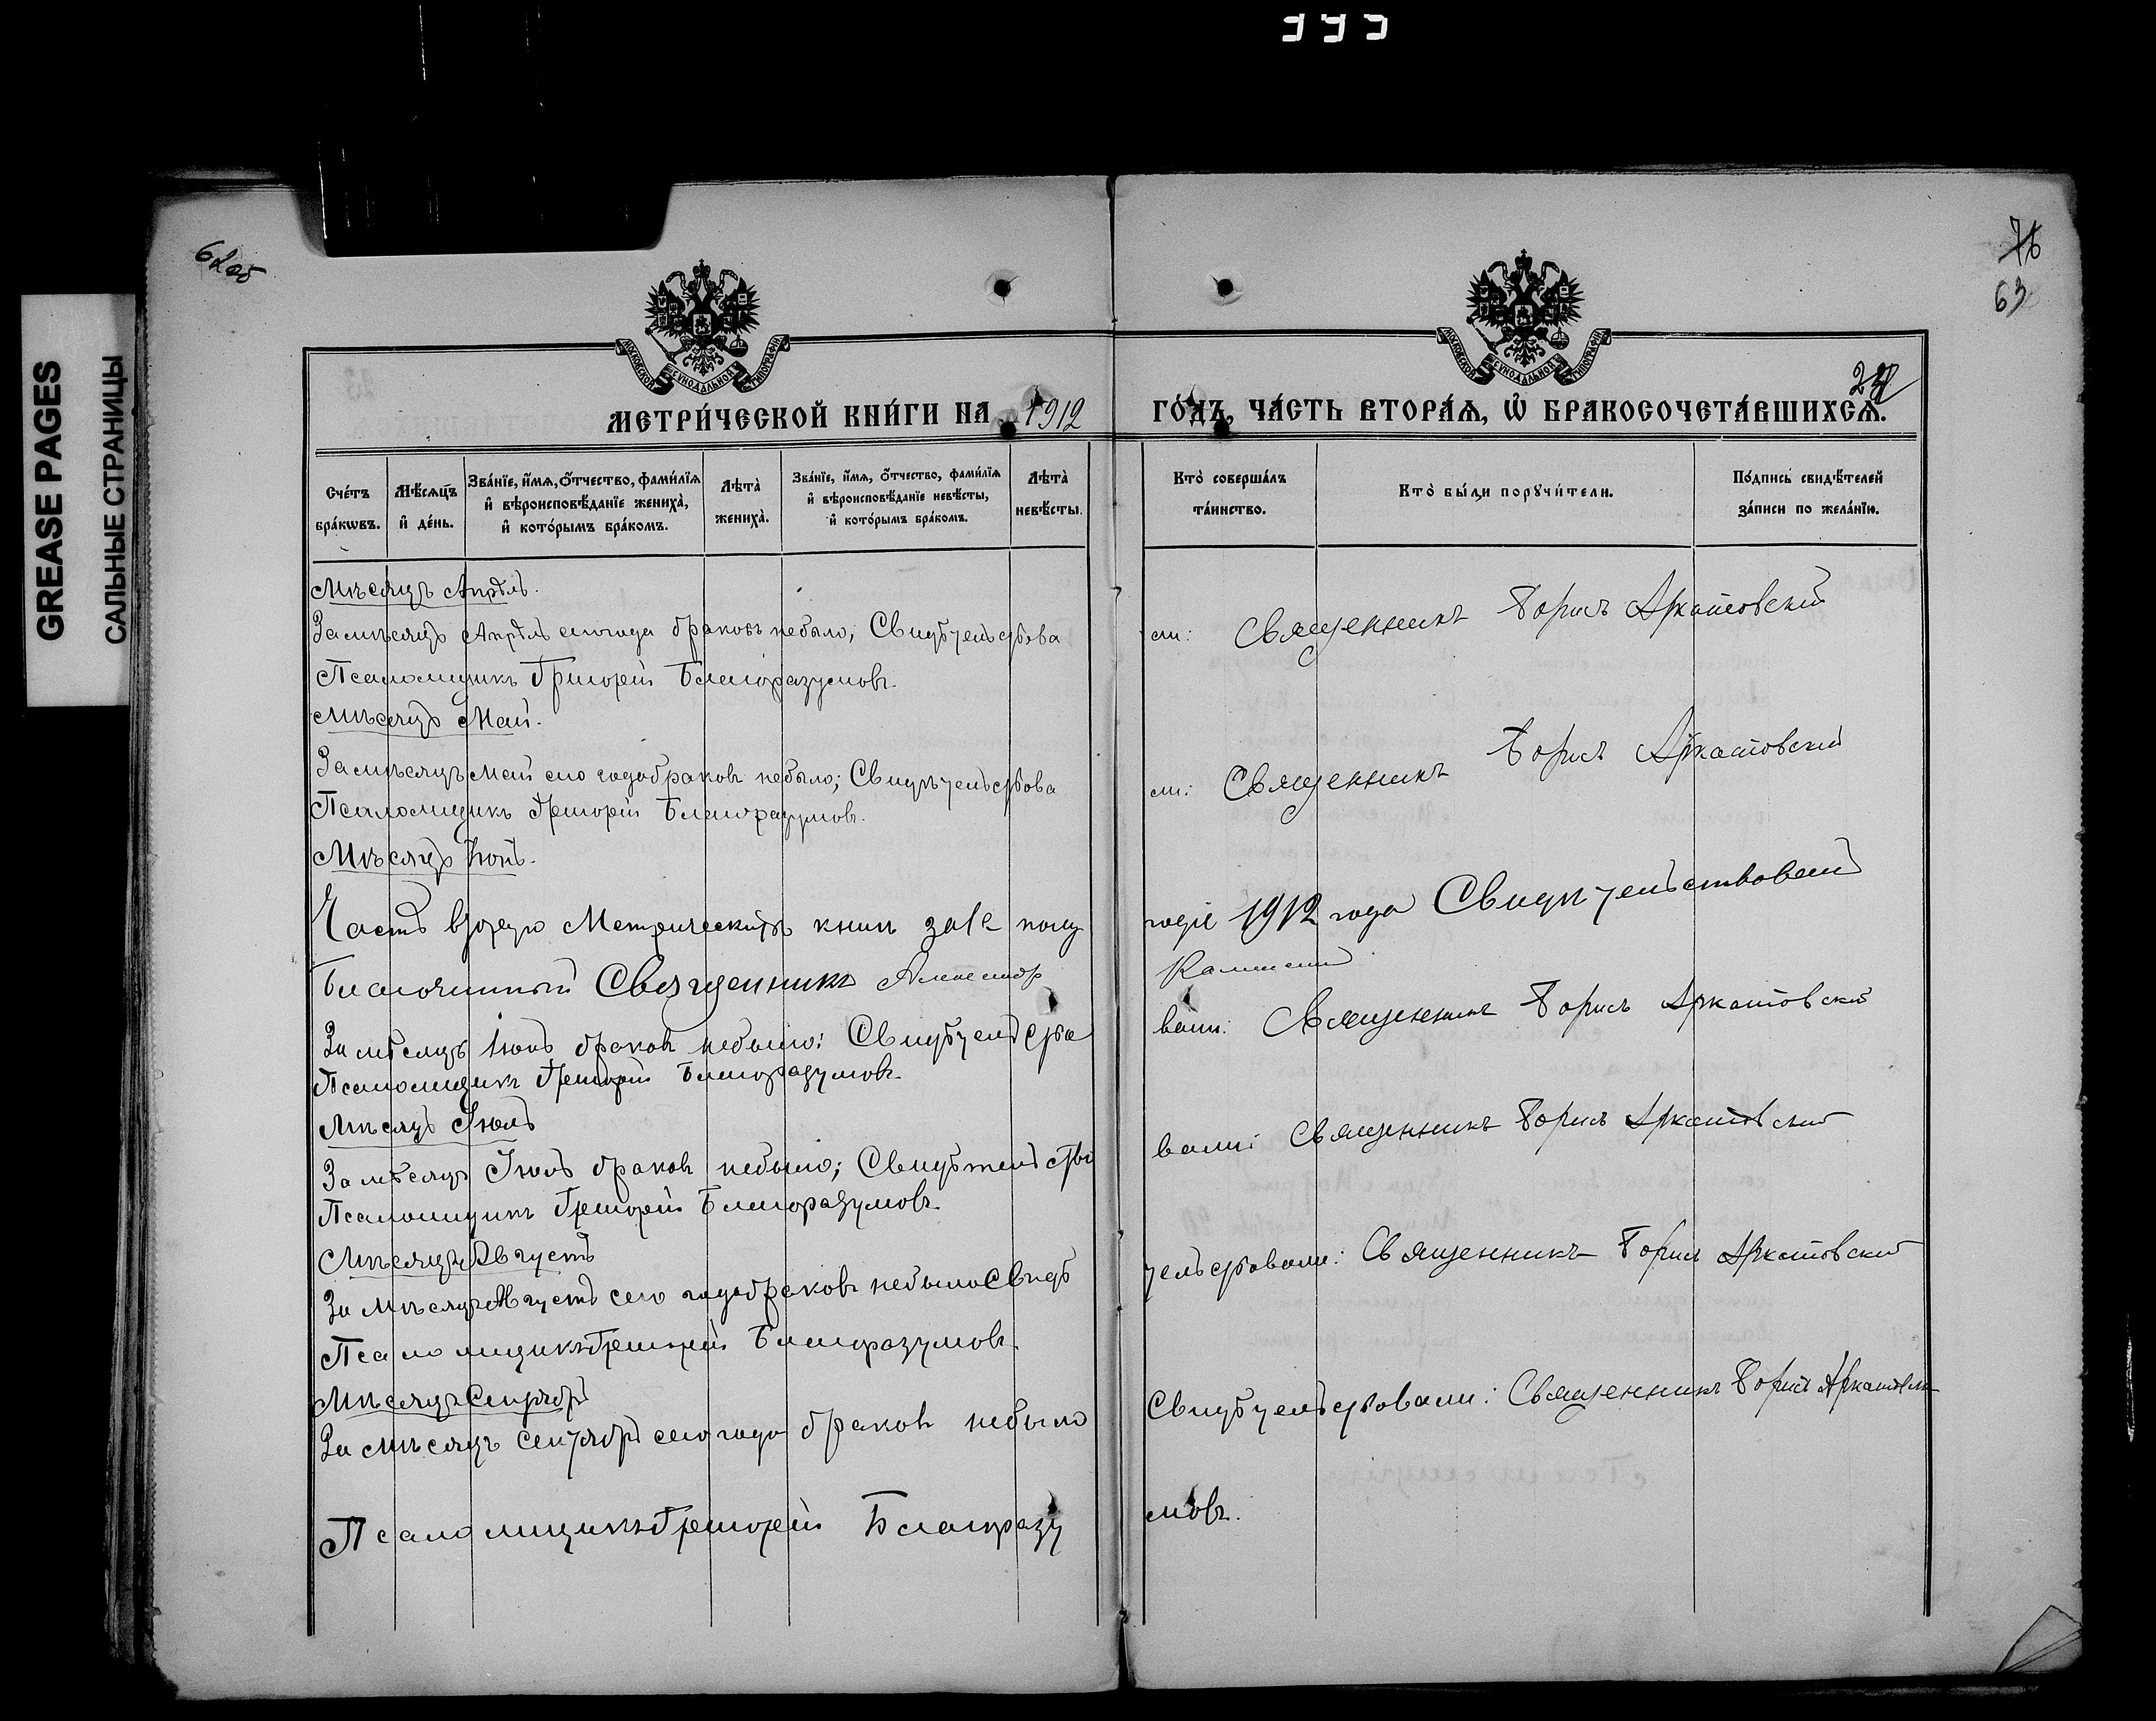 62об
76
63
GREASE PAGES
САЛЬНЫЕ СТРАНИЦЫ
МОСКОВСКОЙ СѴНОДАЛЬНОЙ ТИПОГРАФІИ
МОСКОВСКОЙ СѴНОДАЛЬНОЙ ТИПОГРАФІИ
МЕТРИ́ЧЕСКОЙ КНИ́ГИ НА 1912 ГО́ДЪ, ЧА́СТЬ ВТОРА́Я, Ѡ҆ БРАКОСОЧЕТА́ВШИХСЯ.
Сче́тъ бра́кѡвъ.
Мѣ́сяцъ и҆ де́нь.
Зва́нїе, и҆́мя, ѻ҆́тчество, фами́лїя и҆ вѣроисповѣ́данїе жениха̀, и҆ кото́рымъ бра́комъ.
Лѣта̀ жениха̀.
Зва́нїе, и҆́мя, ѻ҆́тчество, фами́лїя и҆ вѣроисповѣ́данїе невѣ́сты, и҆ кото́рымъ бра́комъ.
Лѣта̀ невѣ́сты.
Кто̀ соверша́лъ та́инство.
Кто̀ бы́ли порꙋчи́тели.
По́дпись свидѣ́телей за́писи по жела́нїю.
Мѣсяцъ Апрѣль.
За мѣсяцъ Апрѣль сего года браковъ небыло; Свидѣтельствова ли: Священникъ Борисъ Аркатовский
Псаломщикъ Григорій Благоразумовъ.
Мѣсяцъ Май.
За мѣсяцъ Май сего года браковъ небыло; Свидѣтельствова ли: Священникъ Борисъ Аркатовский
Псаломщикъ Григорій Благоразумовъ.
Мѣсяцъ Іюнь.
Часть вторую Метрическихъ книгъ за 1е полу годіе 1912 года Свидѣтельствовалъ
Благочинный Священникъ Александр
За мѣсяцъ Іюнь браковъ небыло: Свидѣтельство вали: Священникъ Борисъ Аркатовский
Псаломщикъ Григорій Благоразумовъ.
Мѣсяцъ Іюль
За мѣсяцъ Іюль браковъ небыло; Свидѣтельство вали: Священникъ Борисъ Аркатовский
Псаломщикъ Григорій Благоразумовъ.
Мѣсяцъ Августъ
За мѣсяцъ Августъ сего года браковъ небыло Свидѣ тельствовали: Священникъ Борисъ Аркатовский
Псаломщикъ Григорій Благоразумовъ.
Мѣсяцъ Сентябрь
За мѣсяцъ Сентябрь сего года браковъ небыло Свидѣтельствовали: Священникъ Борисъ Аркатовский
Псаломщикъ Григорій Благоразу мовъ.